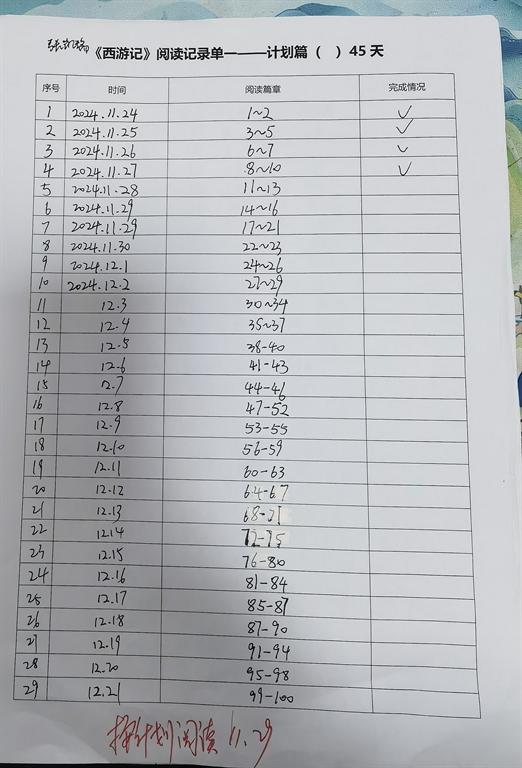 《西游记》阅读记录单一——计划篇（ ）45天
序号 时间 阅读篇章 完成情况
1 2024.11.24 1~2 ✓
2 2024.11.25 3~5 ✓
3 2024.11.26 6~7 ✓
4 2024.11.27 8~10 ✓
5 2024.11.28 11~13
6 2024.11.29 14~16
7 2024.11.29 17~21
8 2024.11.30 22~23
9 2024.12.1 24~26
10 2024.12.2 27~29
11 12.3 30~34
12 12.4 35~37
13 12.5 38-40
14 12.6 41-43
15 12.7 44-46
16 12.8 47-52
17 12.9 53-55
18 12.10 56-59
19 12.11 60-63
20 12.12 64-67
21 12.13 68-71
22 12.14 72-75
23 12.15 76-80
24 12.16 81-84
25 12.17 85-87
26 12.18 87-90
27 12.19 91-94
28 12.20 95-98
29 12.21 99-100
按计划阅读 11.29